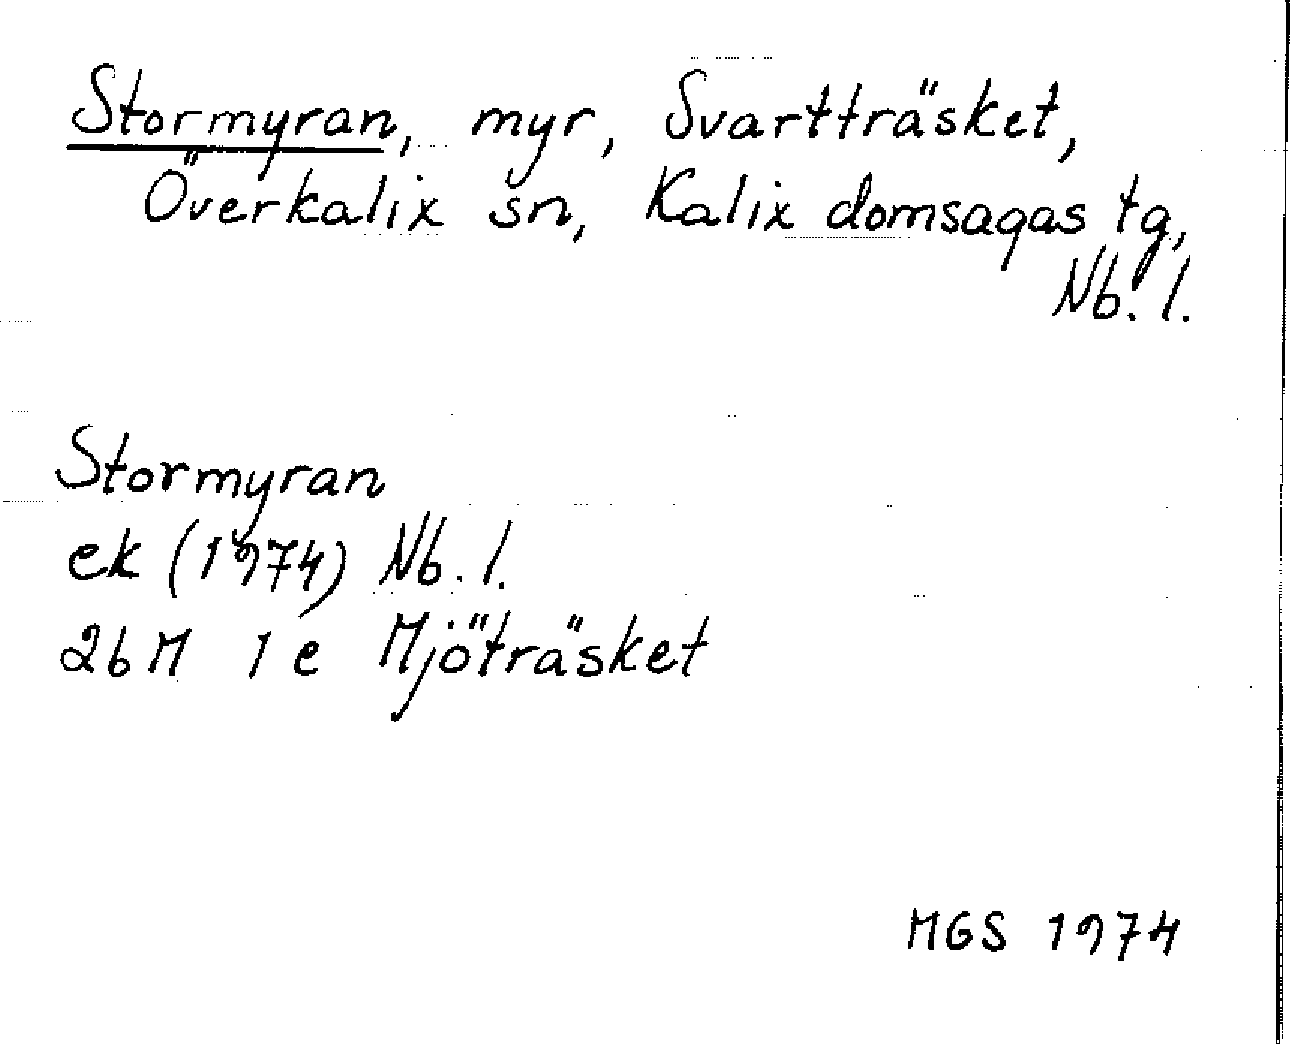 Stormyran, myr, Svartträsket,
Överkalix sn, Kalix domsagas tg,
Nb. l.
Stormyran
ek (1974) Nb. l.
26M 1e Mjöträsket
MGS 1974